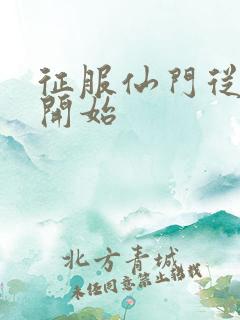 征服仙門從
開始
北方青城
未经同意禁止转载